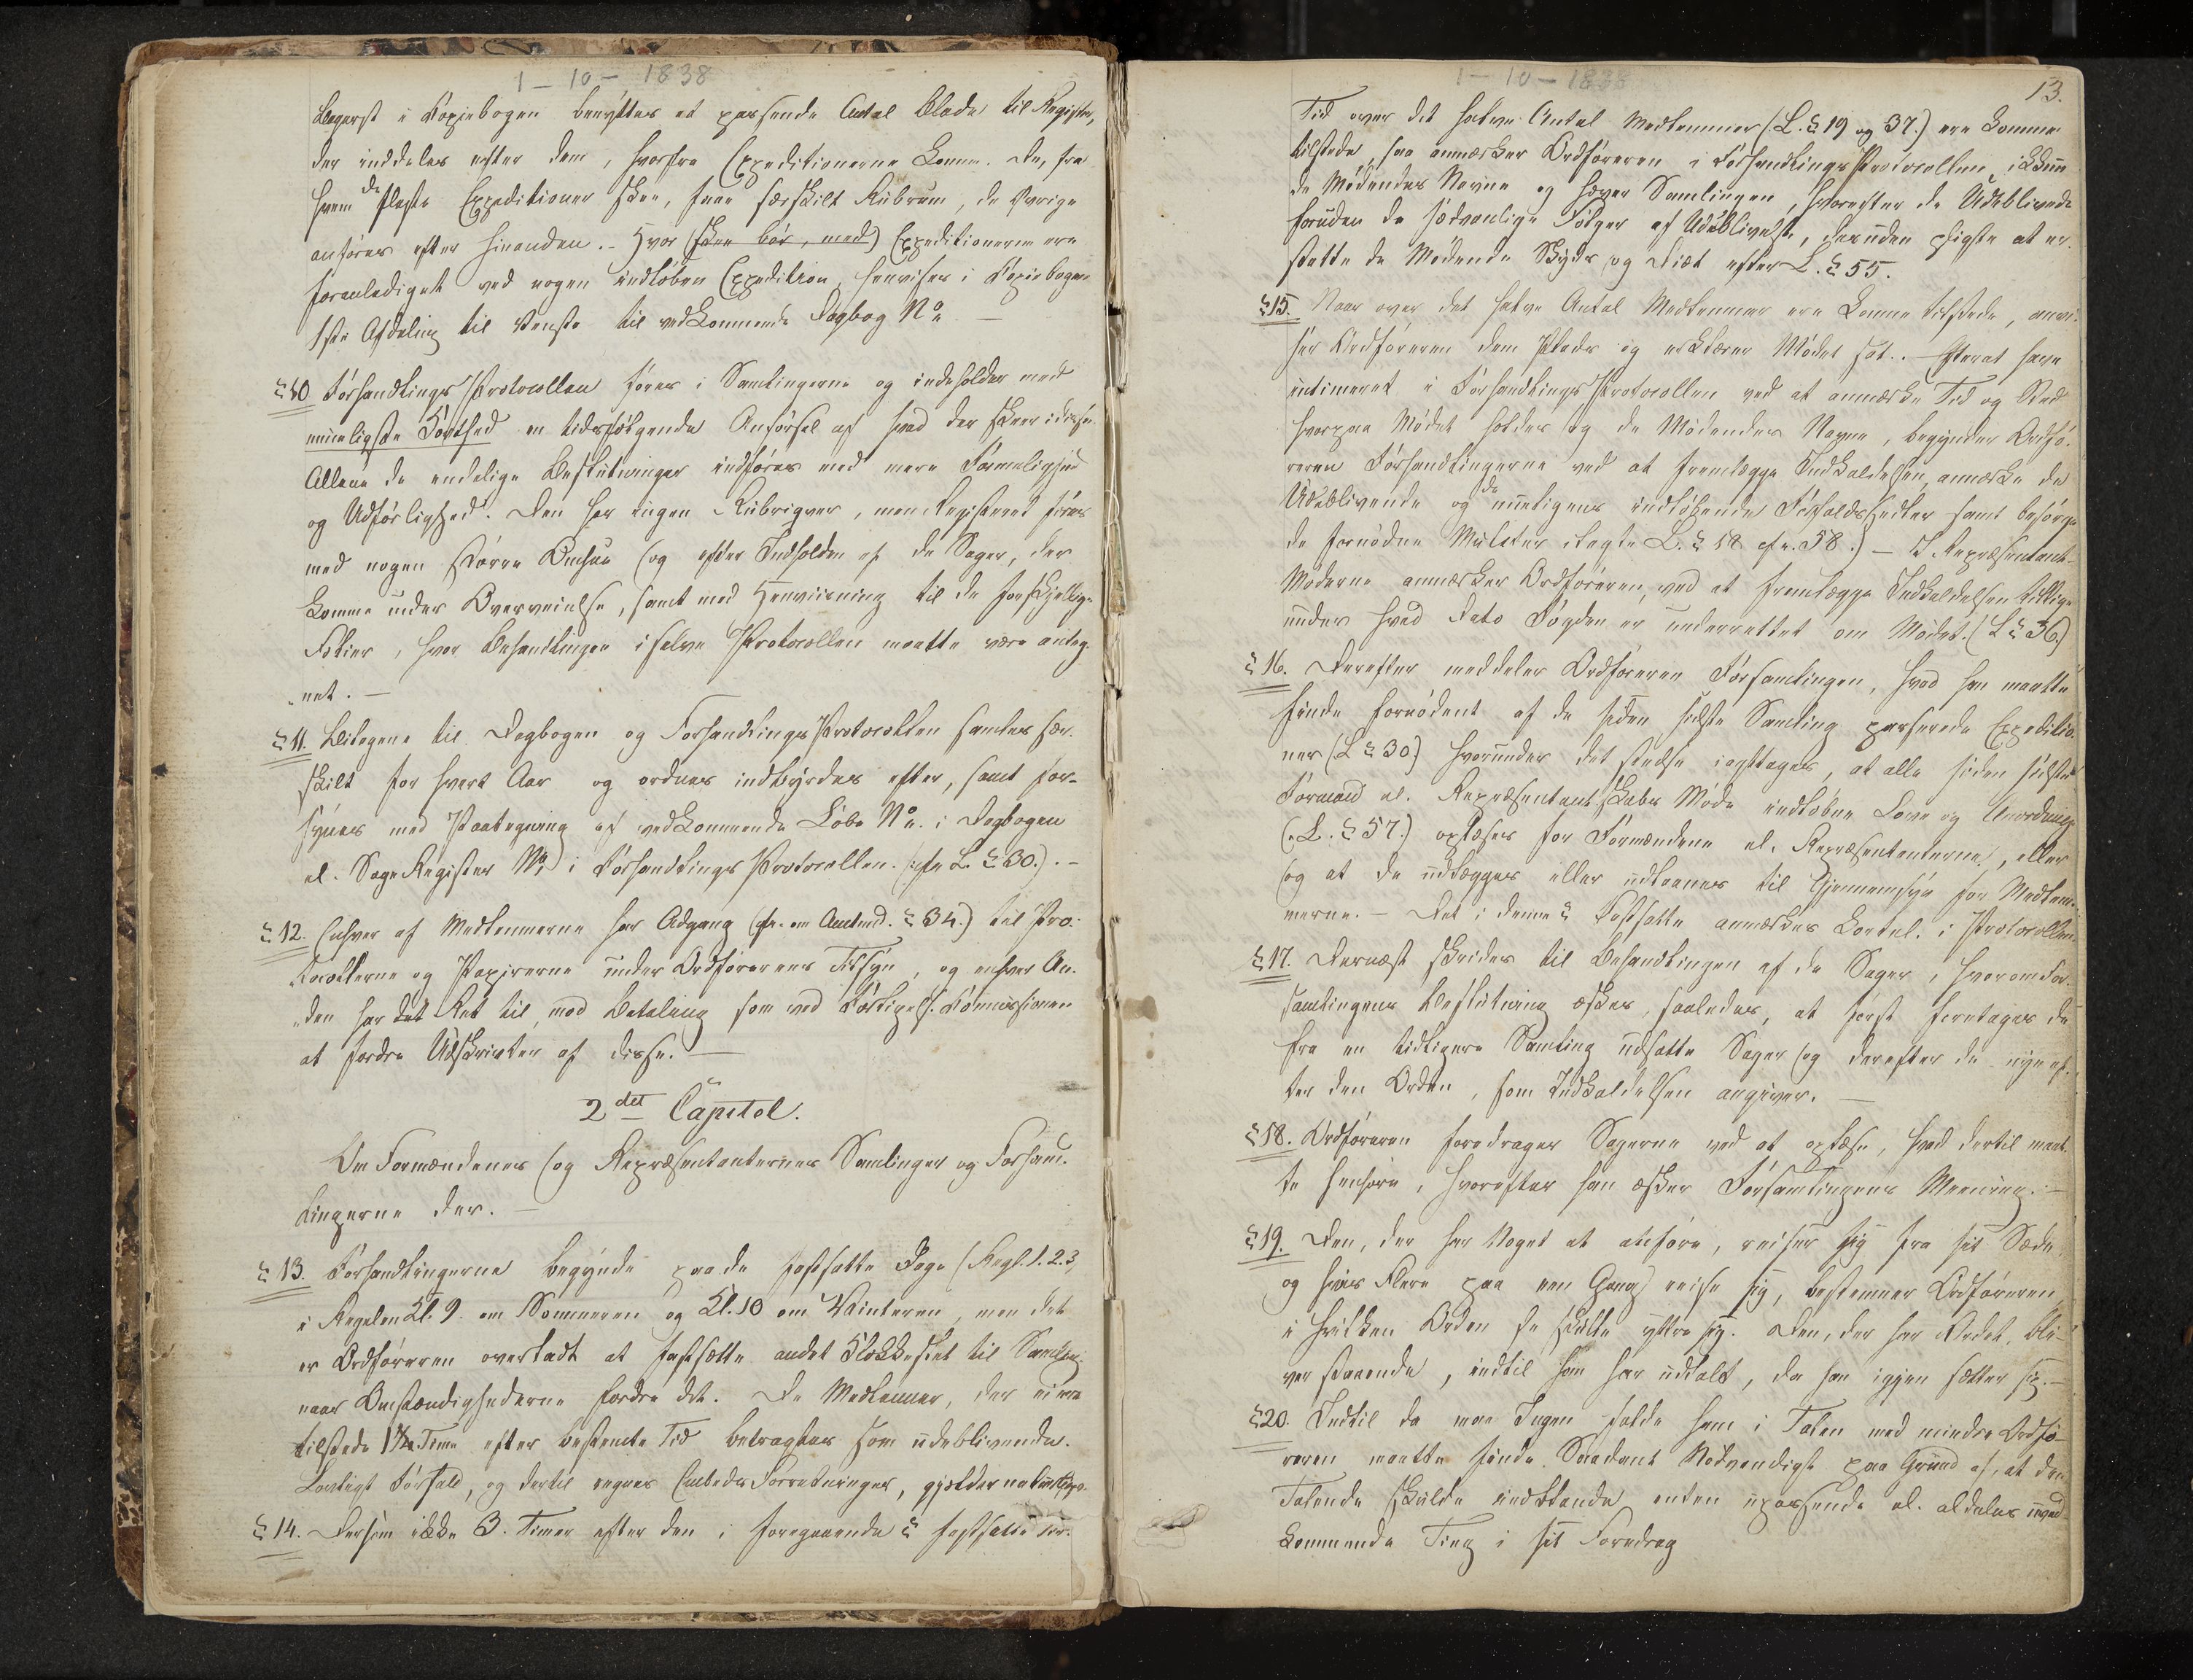 1-10-1838
Bagerst i Kopiebogen benyttes et passende Antal Blade til Register,
der inddeles efter dem, hvorfra Expeditionerne komme. De, fra
hvem de fleste Expeditioner skee, faae særskilt Rubrum, de øvrige
anføres efter hinanden. - Hvor (skee bør, med) Expeditionerne ere
foranlediget ved nogen indløben Expedition, henvises i Kopiebogens
1ste Afdeling til Venstre til vedkommende Dagbog No. -
§10 Forhandlings Protocollen føres i Samlingerne og indeholder med
mueligste Korthed en tidsfølgende Anførsel af hvad der skeer i disse.
Allene de endelige Beslutninger indføres med mere Særmelighed
og Udførlighed. Den har ingen Rubrigver, men Registeret føres
med nogen større Omhue og efter Indholden af de Sager, der
komme under Overveielse, samt med Henviisning til de forskjellige
Folier, hvor Behandlingen i selve Protocollen maatte være anteg-
net. -
§11. Bilagene til Dagbogen og Forhandlings Protocollen samles sær-
skilt for hvert Aar og ordnes indbyrdes efter, samt for-
synes med Paategning af vedkommende Løbe No. i Dagbogen
el. Sage Register No. i Forhandlings Protocollen. (cfr L. §30.). -
§12. Enhver af Medlemmerne har Adgang (cfr. om Amtmd. §34.) til Pro-
tocollerne og Papirerne under Ordførerens Tilsyn, og enhver An-
den har det Ret til, mod Betaling som ved Forligelses Kommissionen
at fordre Udskrivter af disse. -
2det Capitel.
Om Formændenes og Repræsentanternes Samlinger og Forhand-
lingerne der. -
§13. Forhandlingerne begynde paa de fastsatte Dage (Regl. 1.2.3,
i Regelen Kl. 9. om Sommeren og Kl. 10 om Vinteren, men det
er Ordføreren overladt at fastsætte andet Klokkeslet til Samling
naar Omstændighederne fordre det. De Medlemmer, der ei ere
tilstede 1½ Time efter bestemte Tid betragtes som udeblivende.
Lovligt Forfald, og dertil regnes Embeds Forretninger, gjelder naturligviis.
§14. Dersom ikke 3. Timer efter den i foregaaende § fastsatte
1-10-1838
13.
Tid over det halve Antal Medlemmer (L. §19 og 37.) ere komne
tilstede, saa anmærker Ordføreren i Forhandlings Protocollen, ikkun
de Mødendes Navne og hæver Samlingen, hvorefter de Udeblivende
foruden de sædvanlige Følger af Udeblivelse, desuden pligte at er-
statte de Mødende Skyds og Diæt efter L. §55.
§15. Naar over det halve Antal Medlemmer ere komne tilstede, anvi-
ser Ordføreren dem Plads og erklærer Mødet sat. - Efterat have
intimeret i Forhandlings Protocollen ved at anmærke Tid og Sted
hvorpaa Mødet holdes og de Mødendes Navne, begynder Ordfø-
reren Forhandlingerne ved at fremlægge Indkaldelsen, anmærke de
Udeblivende og de mueligens indløbende Forfaldssedler samt besørge
de fornødne Mulkter ilagte L. §18 cfr. 58.) - I Repræsentant-
Møderne anmærker Ordføreren, ved at fremlægge Indkaldelsen tillige
under hvad Dato Fogden er underrettet om Mødet. (L §36.)
§16. Derefter meddeler Ordføreren Forsamlingen, hvad han maatte
finde fornødent af de siden sidste Samling passerede Expeditio-
ner (L §30.) hvorunder det stedse iagttages, at alle siden sidste
Formand el. Repræsentantskabs Møde indløbne Love og Anordninger
(L. §57.) oplæses for Formændene el. Repræsentanterne, eller
og at de udlægges eller udlaanes til Gjennemsyn for Medlem-
merne. - Det i denne § Fastsatte anmærkes kortel. i Protocollen.
§17. Dernæst skrides til Behandlingen af de Sager, hvorom For-
samlingens Beslutning æskes, saaledes, at først foretages de
fra en tidligere Samling udsatte Sager og derefter de nye ef-
ter den Orden, som Indkaldelsen angiver. -
§18. Ordføreren foredrager Sagerne ved at oplæse, hvad dertil maat-
te henhøre, hvorefter han æsker Forsamlingens Meening. -
§19. Den, der har Noget at anføre, reiser sig fra sit Sæde,
og hvis Flere paa een Gang reise sig, bestemmer Ordføreren,
i hvilken Orden de skulle yttre sig. Den, der har Ordet, bli-
ver staaende, indtil han har udtalt, da han igjen sætter sig. -
§20. Indtil da maa Ingen falde ham i Talen med mindre Ordfø-
reren maatte finde Saadant Nødvendigt paa Grund af, at den
Talende skulde indblande enten upassende el. aldeles uved-
kommende Ting i sit Foredrag